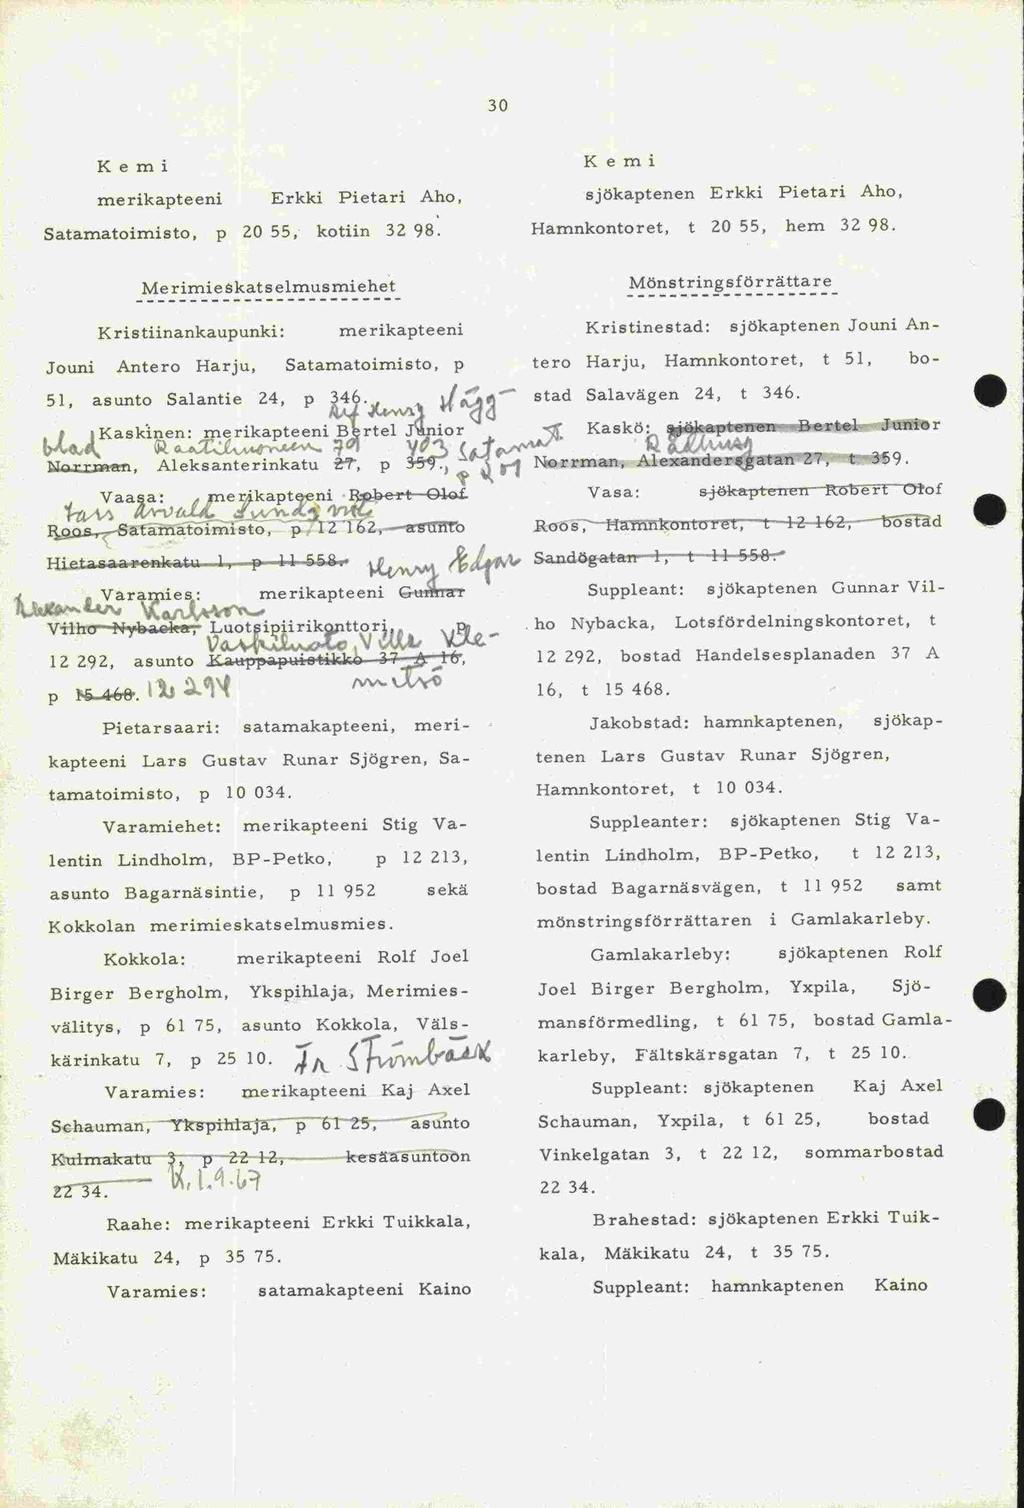 30
K e m i
merikapteeni Erkki Pietari Aho,
Satamatoimisto, p 20 55, kotiin 32 98.
Merimieskatselmusmiehet
Kristiinankaupunki: merikapteeni
Jouni Antero Harju, Satamatoimisto, p
51, asunto Salantie 24, p 346.
Henry Hägg-
Kaskinen: merikapteeni Bertel Junior
blad 79 403
Norrman, Aleksanterinkatu 27, p 359.,
Vaasa: merikapteeni Robert Olof
Lars Arvald Lundqvist
Roos, Satamatoimisto, p 12 162, asunto
Hietasaarenkatu 1, p 11 558.
Henry Edgar
Varamies: merikapteeni Gunnar
Alexander Karlsson
Vilho Nybacka, Luotsipiirikonttori, p
Vaskiluoto, Ville Kle-
12 292, asunto Kauppapuistikko 37 A 16,
metsö
p 15 468. 12 294
Pietarsaari: satamakapteeni, meri-
kapteeni Lars Gustav Runar Sjögren, Sa-
tamatoimisto, p 10 034.
Varamiehet: merikapteeni Stig Va-
lentin Lindholm, BP-Petko, p 12 213,
asunto Bagarnäsintie, p 11 952 sekä
Kokkolan merimieskatselmusmies.
Kokkola: merikapteeni Rolf Joel
Birger Bergholm, Ykspihlaja, Merimies-
välitys, p 61 75, asunto Kokkola, Väls-
kärinkatu 7, p 25 10. Strömbäck
Varamies: merikapteeni Kaj Axel
Schauman, Ykspihlaja, p 61 25, asunto
Kulmakatu 3, p 22 12, kesäasuntoon
22 34. K. 1.9.67
Raahe: merikapteeni Erkki Tuikkala,
Mäkikatu 24, p 35 75.
Varamies: satamakapteeni Kaino
K e m i
sjökaptenen Erkki Pietari Aho,
Hamnkontoret, t 20 55, hem 32 98.
Mönstringsförrättare
Kristinestad: sjökaptenen Jouni An-
tero Harju, Hamnkontoret, t 51, bo-
stad Salavägen 24, t 346.
Kaskö: sjökaptenen Bertel Junior
Norrman, Alexandersgatan 27, t 359.
Vasa: sjökaptenen Robert Olof
Roos, Hamnkontoret, t 12 162, bostad
Sandögatan 1, t 11 558.
Suppleant: sjökaptenen Gunnar Vil-
ho Nybacka, Lotsfördelningskontoret, t
12 292, bostad Handelsesplanaden 37 A
16, t 15 468.
Jakobstad: hamnkaptenen, sjökap-
tenen Lars Gustav Runar Sjögren,
Hamnkontoret, t 10 034.
Suppleanter: sjökaptenen Stig Va-
lentin Lindholm, BP-Petko, t 12 213,
bostad Bagarnäsvägen, t 11 952 samt
mönstringsförrättaren i Gamlakarleby.
Gamlakarleby: sjökaptenen Rolf
Joel Birger Bergholm, Yxpila, Sjö-
mansförmedling, t 61 75, bostad Gamla-
karleby, Fältskärsgatan 7, t 25 10.
Suppleant: sjökaptenen Kaj Axel
Schauman, Yxpila, t 61 25, bostad
Vinkelgatan 3, t 22 12, sommarbostad
22 34.
Brahestad: sjökaptenen Erkki Tuik-
kala, Mäkikatu 24, t 35 75.
Suppleant: hamnkaptenen Kaino